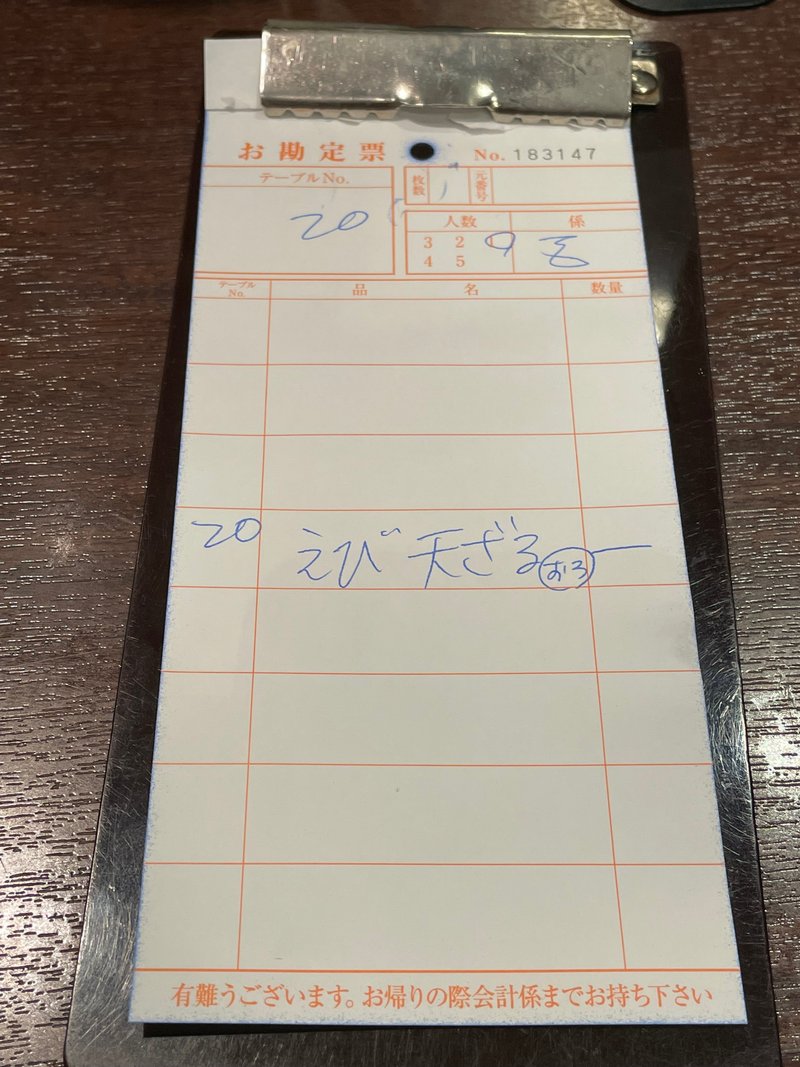 お勘定票 No. 183147
テーブルNo. 枚数 元番号
20
人数 係
3 2 1
4 5
テーブルNo. 品名 数量
20 えび天ざる おろ 一
有難うございます。お帰りの際会計係までお持ち下さい